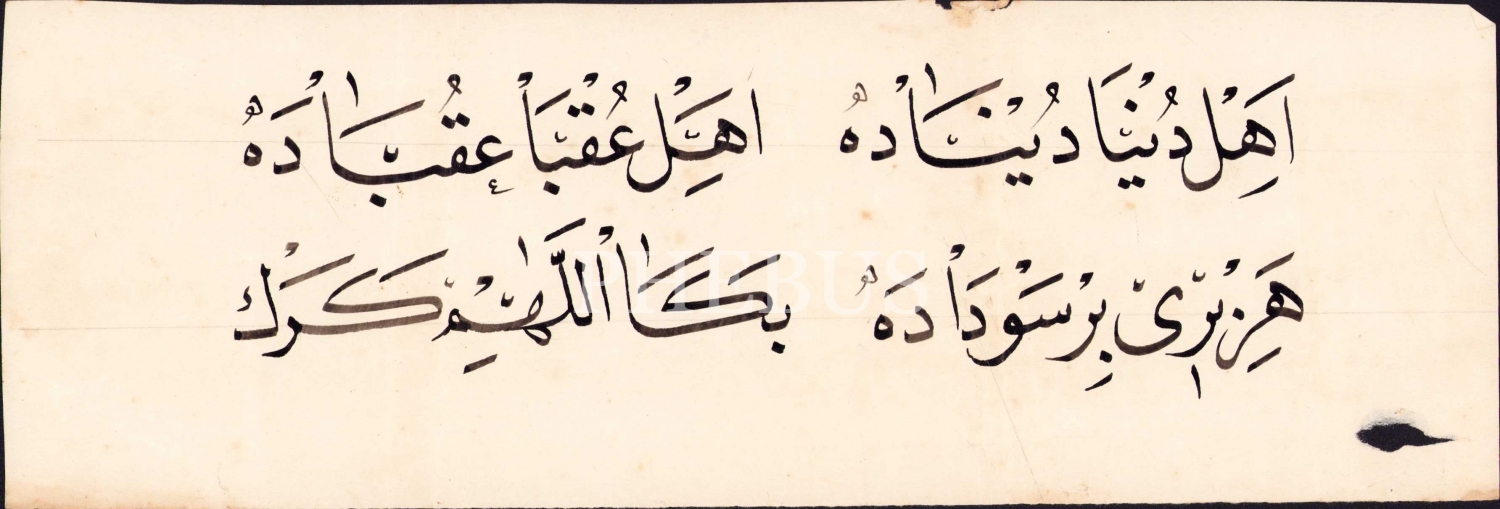 اَهِلْ دُنْيَا دُيْنَادَه اَهِلْ عُقْبَا عُقْبَادَه
هَرِ بْرِى بِرْ سَوْدَادَه بَكَا اَللّٰهِمْ كَرَكْ
PHEBUS